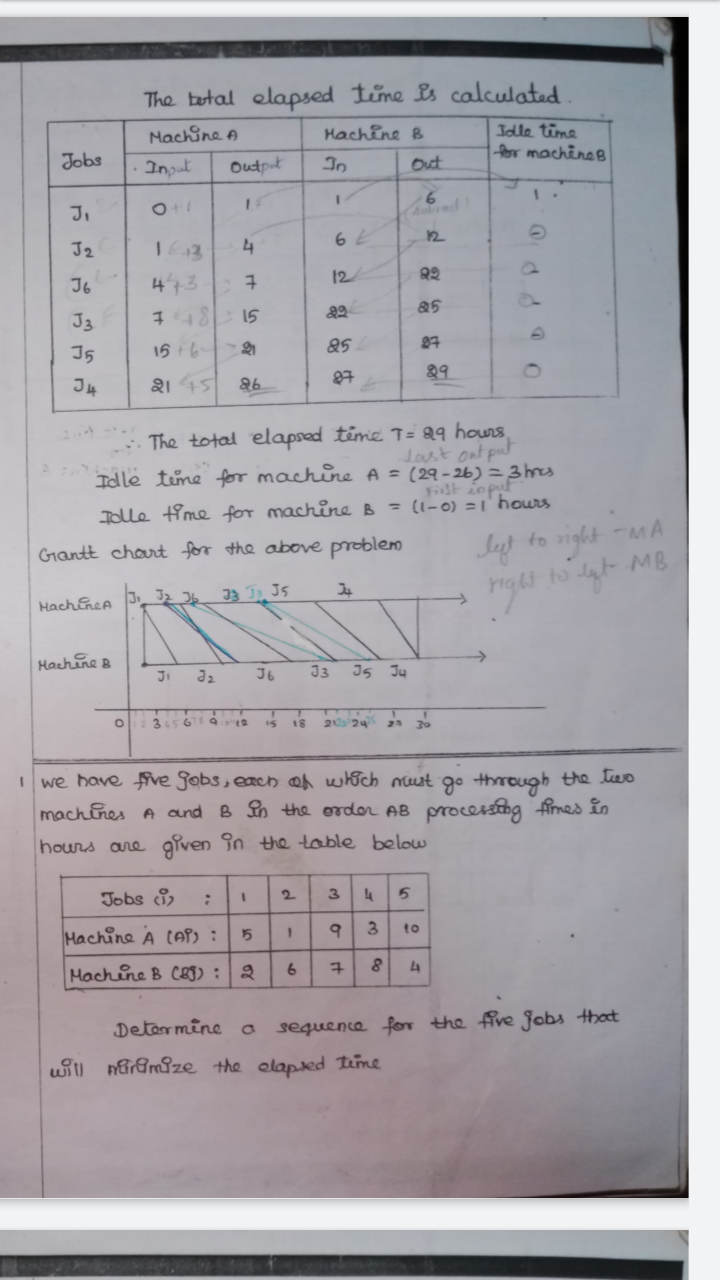 The total elapsed time is calculated.
Jobs Machine A Machine B Idle time for machine B
Input Output In Out
J1 0+1 1 1 6 1
J2 1 +3 4 6 12 0
J6 4+3 7 12 22 0
J3 7 +8 15 22 25 0
J5 15+6 21 25 27 0
J4 21 +5 26 27 29 0
∴ The total elapsed time T = 29 hours
last output
Idle time for machine A = (29-26) = 3 hrs
First input
Idle time for machine B = (1-0) = 1 hours
Gantt chart for the above problem
left to right - MA
right to left - MB
Machine A J1 J2 J6 J3 J5 J4
Machine B J1 J2 J6 J3 J5 J4
0 3 6 9 12 15 18 21 24 27 30
1 we have five jobs, each of which must go through the two
machines A and B in the order AB processing times in
hours are given in the table below
Jobs (i) : 1 2 3 4 5
Machine A (Ai) : 5 1 9 3 10
Machine B (Bj) : 2 6 7 8 4
Determine a sequence for the five jobs that
will minimize the elapsed time